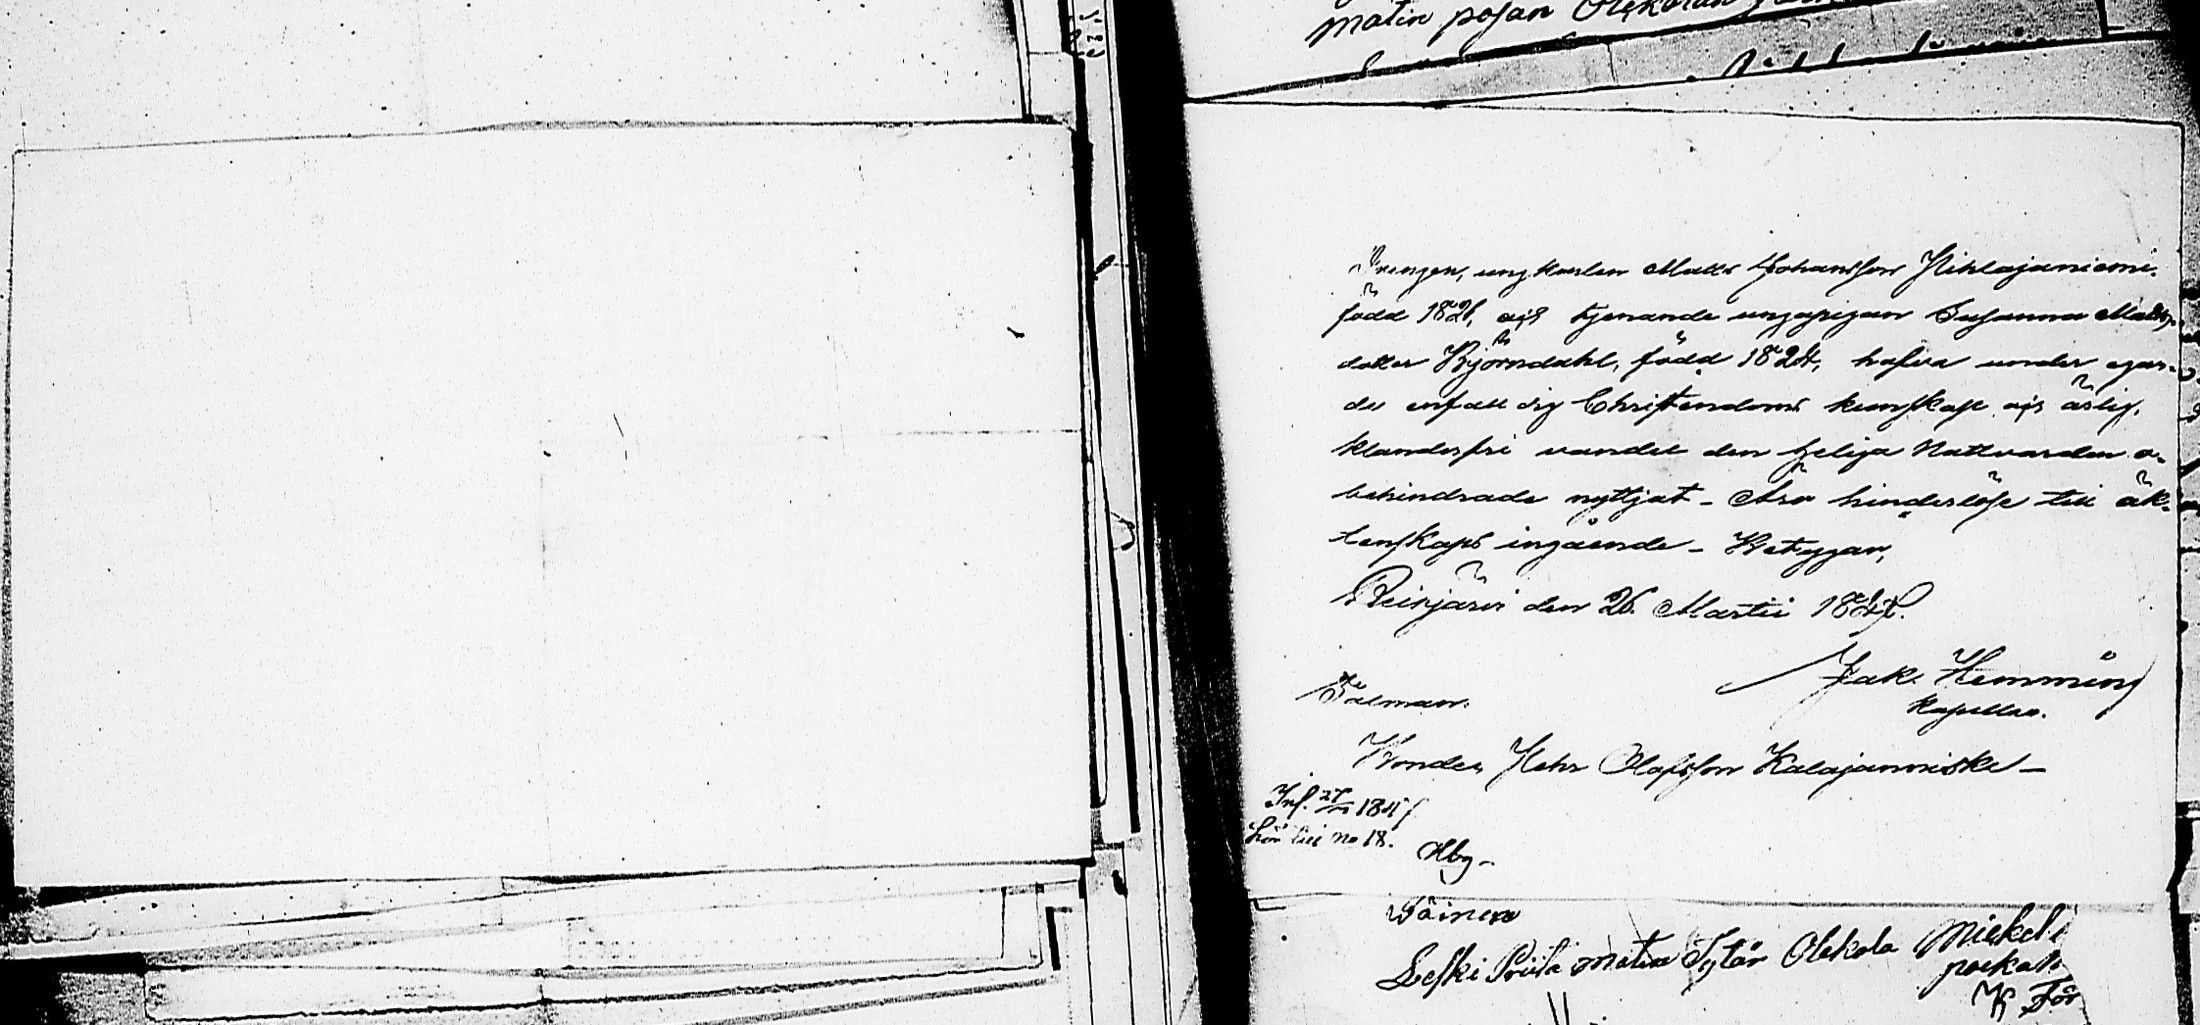 matin pojan
Drengen, ungkarlen Matts Johansson Pihlajaniemi,
född 1826, och tjenande ungpigan Susanna Matts-
dotter Björndahl, född 1824, hafva under egan-
de enfalldig Christendoms kunskap och ärlig,
klanderfri vandel den heliga Nattvarden o-
behindrade nyttjat - Äro hinderslöse till äk-
tenskaps ingående - Betygar,
Reisjärvi den 26 Martii 184
Jak. Hemming
Kapellan.
Talman.
Bonden Hehr Olafsson Kalajanniska -
Inf. 1847
No 18.
Abg -
Toinen
Leski Priita matin Tytär Olekola Miekel
poekal